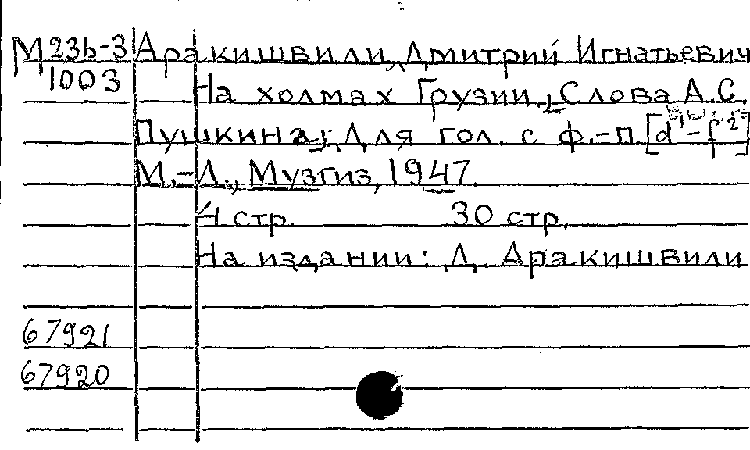 М23b-3 Аракишвили, Дмитрий Игнатьевич
1003 На холмах Грузии. Слова А.С.
Пушкина. Для гол. с ф.-п. [d¹-f²]
М.-Л., Музгиз, 1947.
4 стр. 30 стр.
На издании: Д. Аракишвили
67921
67920